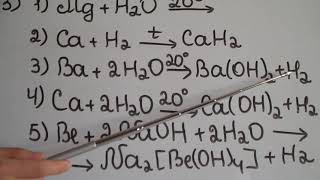 3) 1) Mg + H₂O 20°→
2) Ca + H₂ t→ CaH₂
3) Ba + 2H₂O 20°→ Ba(OH)₂ + H₂
4) Ca + 2H₂O 20°→ Ca(OH)₂ + H₂
5) Be + 2NaOH + 2H₂O →
→ Na₂[Be(OH)₄] + H₂